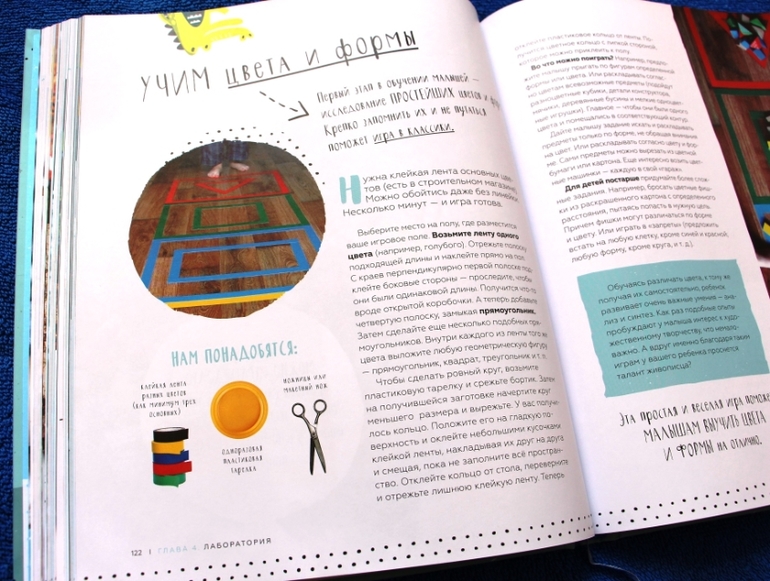 УЧИМ ЦВЕТА И ФОРМЫ
Первый этап в обучении малышей —
исследование ПРОСТЕЙШИХ цветов и форм.
Крепко запомнить их и не путаться
поможет игра в классики.
Нужна клейкая лента основных цве-
тов (есть в строительном магазине).
Можно обойтись даже без линейки.
Несколько минут — и игра готова.
Выберите место на полу, где разместится
ваше игровое поле. Возьмите ленту одного
цвета (например, голубого). Отрежьте полоску
подходящей длины и наклейте прямо на пол.
С краев перпендикулярно первой полоске под-
клейте боковые стороны — проследите, чтобы
они были одинаковой длины. Получится что-то
вроде открытой коробочки. А теперь добавьте
четвертую полоску, замыкая прямоугольник.
Затем сделайте еще несколько подобных пря-
моугольников. Внутри каждого из ленты того же
цвета выложите любую геометрическую фигуру
— прямоугольник, квадрат, треугольник и т. д.
Чтобы сделать ровный круг, возьмите
пластиковую тарелку и срежьте бортик. Затем
на получившейся заготовке начертите круг
меньшего размера и вырежьте. У вас получи-
лось кольцо. Положите его на гладкую по-
верхность и оклейте небольшими кусочками
клейкой ленты, накладывая их друг на друга
и смещая, пока не заполните всё простран-
ство. Отклейте кольцо от стола, переверните
и отрежьте лишнюю клейкую ленту. Теперь
НАМ ПОНАДОБЯТСЯ:
клейкая лента
разных цветов
(как минимум трех
основных)
одноразовая
пластиковая
тарелка
ножницы или
макетный нож
122 | ГЛАВА 4. ЛАБОРАТОРИЯ
пластиковое кольцо от ленты. По-
лучится цветное кольцо с липкой стороной,
которое можно приклеить к полу.
Во что можно поиграть? Например, предло-
жите малышу прыгать по фигурам определенной
формы или цвета. Или раскладывать соглас-
но цветам всевозможные предметы (подойдут
разноцветные кубики, детали конструктора,
мячики, деревянные бусины и мелкие одноцвет-
ные игрушки). Главное — чтобы они были одного
цвета и помещались в соответствующий контур.
Дайте малышу задание искать и раскладывать
предметы только по форме, не обращая внимания
на цвет. Или раскладывать согласно цвету и фор-
ме. Сами предметы можно вырезать из цветной
бумаги или картона. Еще интересно возить цвет-
ные машинки — каждую в свой «гараж».
Для детей постарше придумайте более слож-
ные задания. Например, бросать цветные фиш-
ки из раскрашенного картона с определенного
расстояния, пытаясь попасть в нужную цель.
Причем фишки могут различаться по форме
и цвету. Или играть в «запреты» (предложив
встать на любую клетку, кроме синей и красной;
любую форму, кроме круга, и т. д.).
Обучаясь различать цвета, к тому же
получая их самостоятельно, ребенок
развивает очень важные умения — ана-
лиз и синтез. Как раз подобные опыты
пробуждают у малыша интерес к худо-
жественному творчеству, что немало-
важно. А вдруг именно благодаря таким
играм у вашего ребенка проснется
талант живописца?
Эта простая и веселая игра поможет
МАЛЫШАМ ВЫУЧИТЬ ЦВЕТА
И ФОРМЫ НА ОТЛИЧНО.